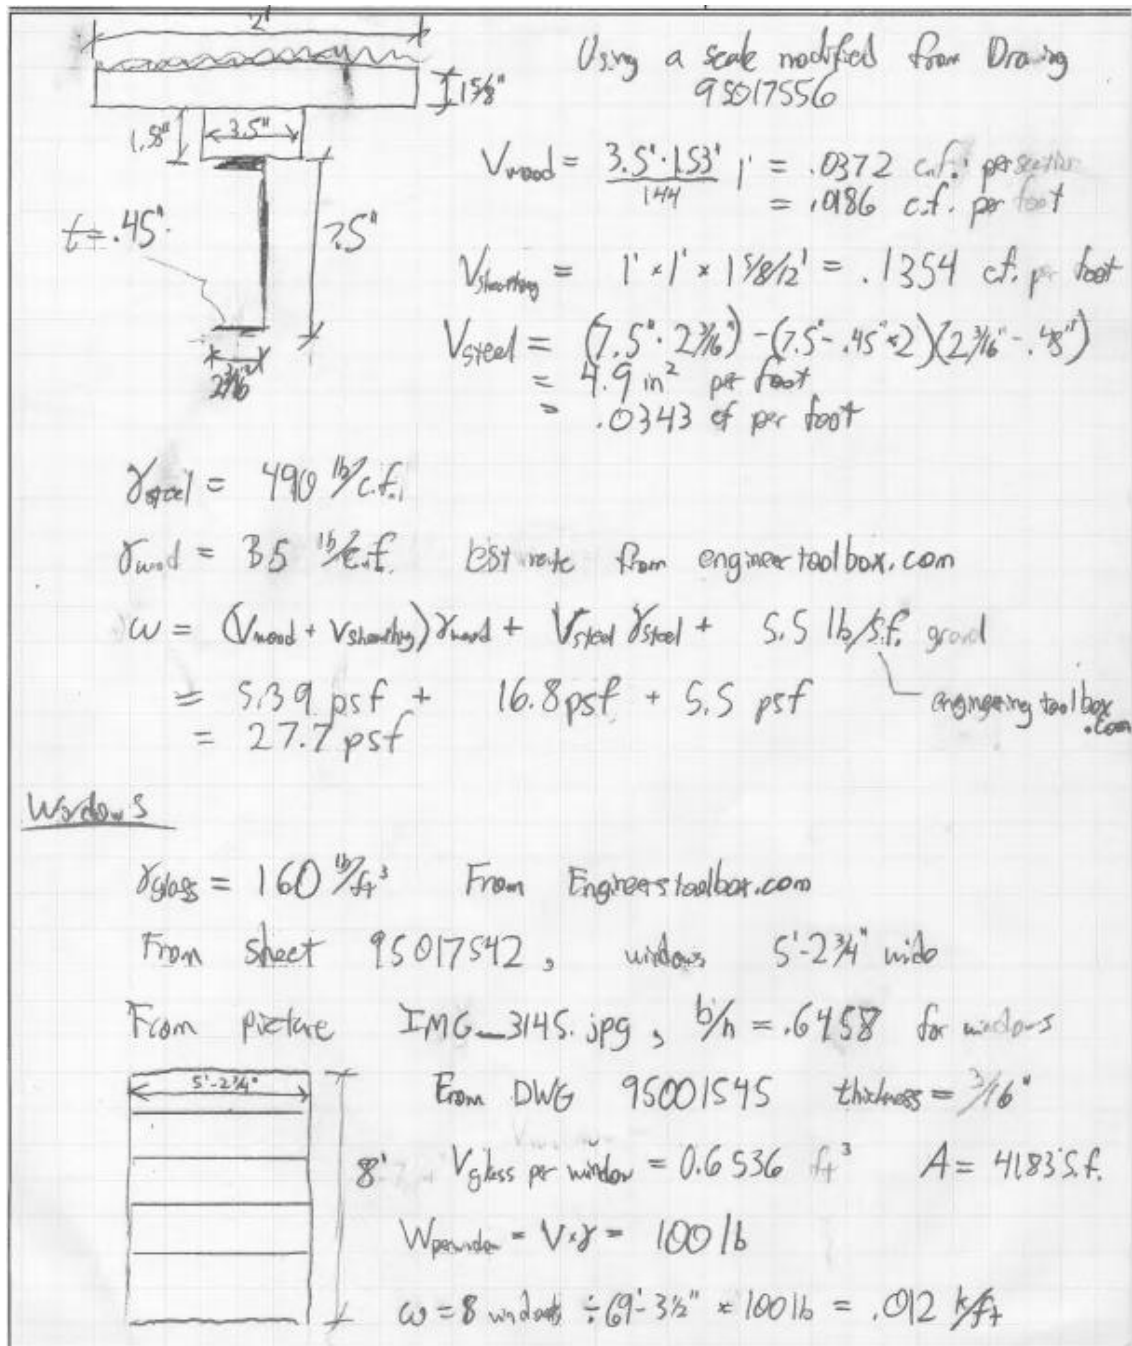 2'
Using a scale modified from Drawing
95017556
1 5/8"
1.5"
3.5"
V wood = 3.5' · 1.53' / 144 1' = .0372 c.f. per section
= .0186 c.f. per foot
t = .45"
7.5"
V sheathing = 1' × 1' × 1 5/8/12' = .1354 cf. per foot
V steel = (7.5" · 2 3/16") - (7.5" - .45" × 2)(2 3/16" - .45")
= 4.9 in² per foot
= .0343 cf per foot
2 3/16"
γ steel = 490 lb/c.f.
γ wood = 35 lb/c.f. Estimate from engineertoolbox.com
ω = (V wood + V sheathing) γ wood + V steel γ steel + 5.5 lb/s.f. gravel
= 5.39 psf + 16.8 psf + 5.5 psf
engineering toolbox
.com
= 27.7 psf
Windows
γ glass = 160 lb/ft³ From Engineerstoolbox.com
From sheet 95017542, windows 5'-2 3/4" wide
From picture IMG_3145.jpg, b/h = .6458 for windows
5'-2 3/4"
From DWG 95001545 thickness = 3/16"
8'
V glass per window = 0.6536 ft³ A = 41.83 s.f.
W per window = V × γ = 100 lb
ω = 8 windows ÷ 69'-3 1/2" × 100 lb = .012 k/ft